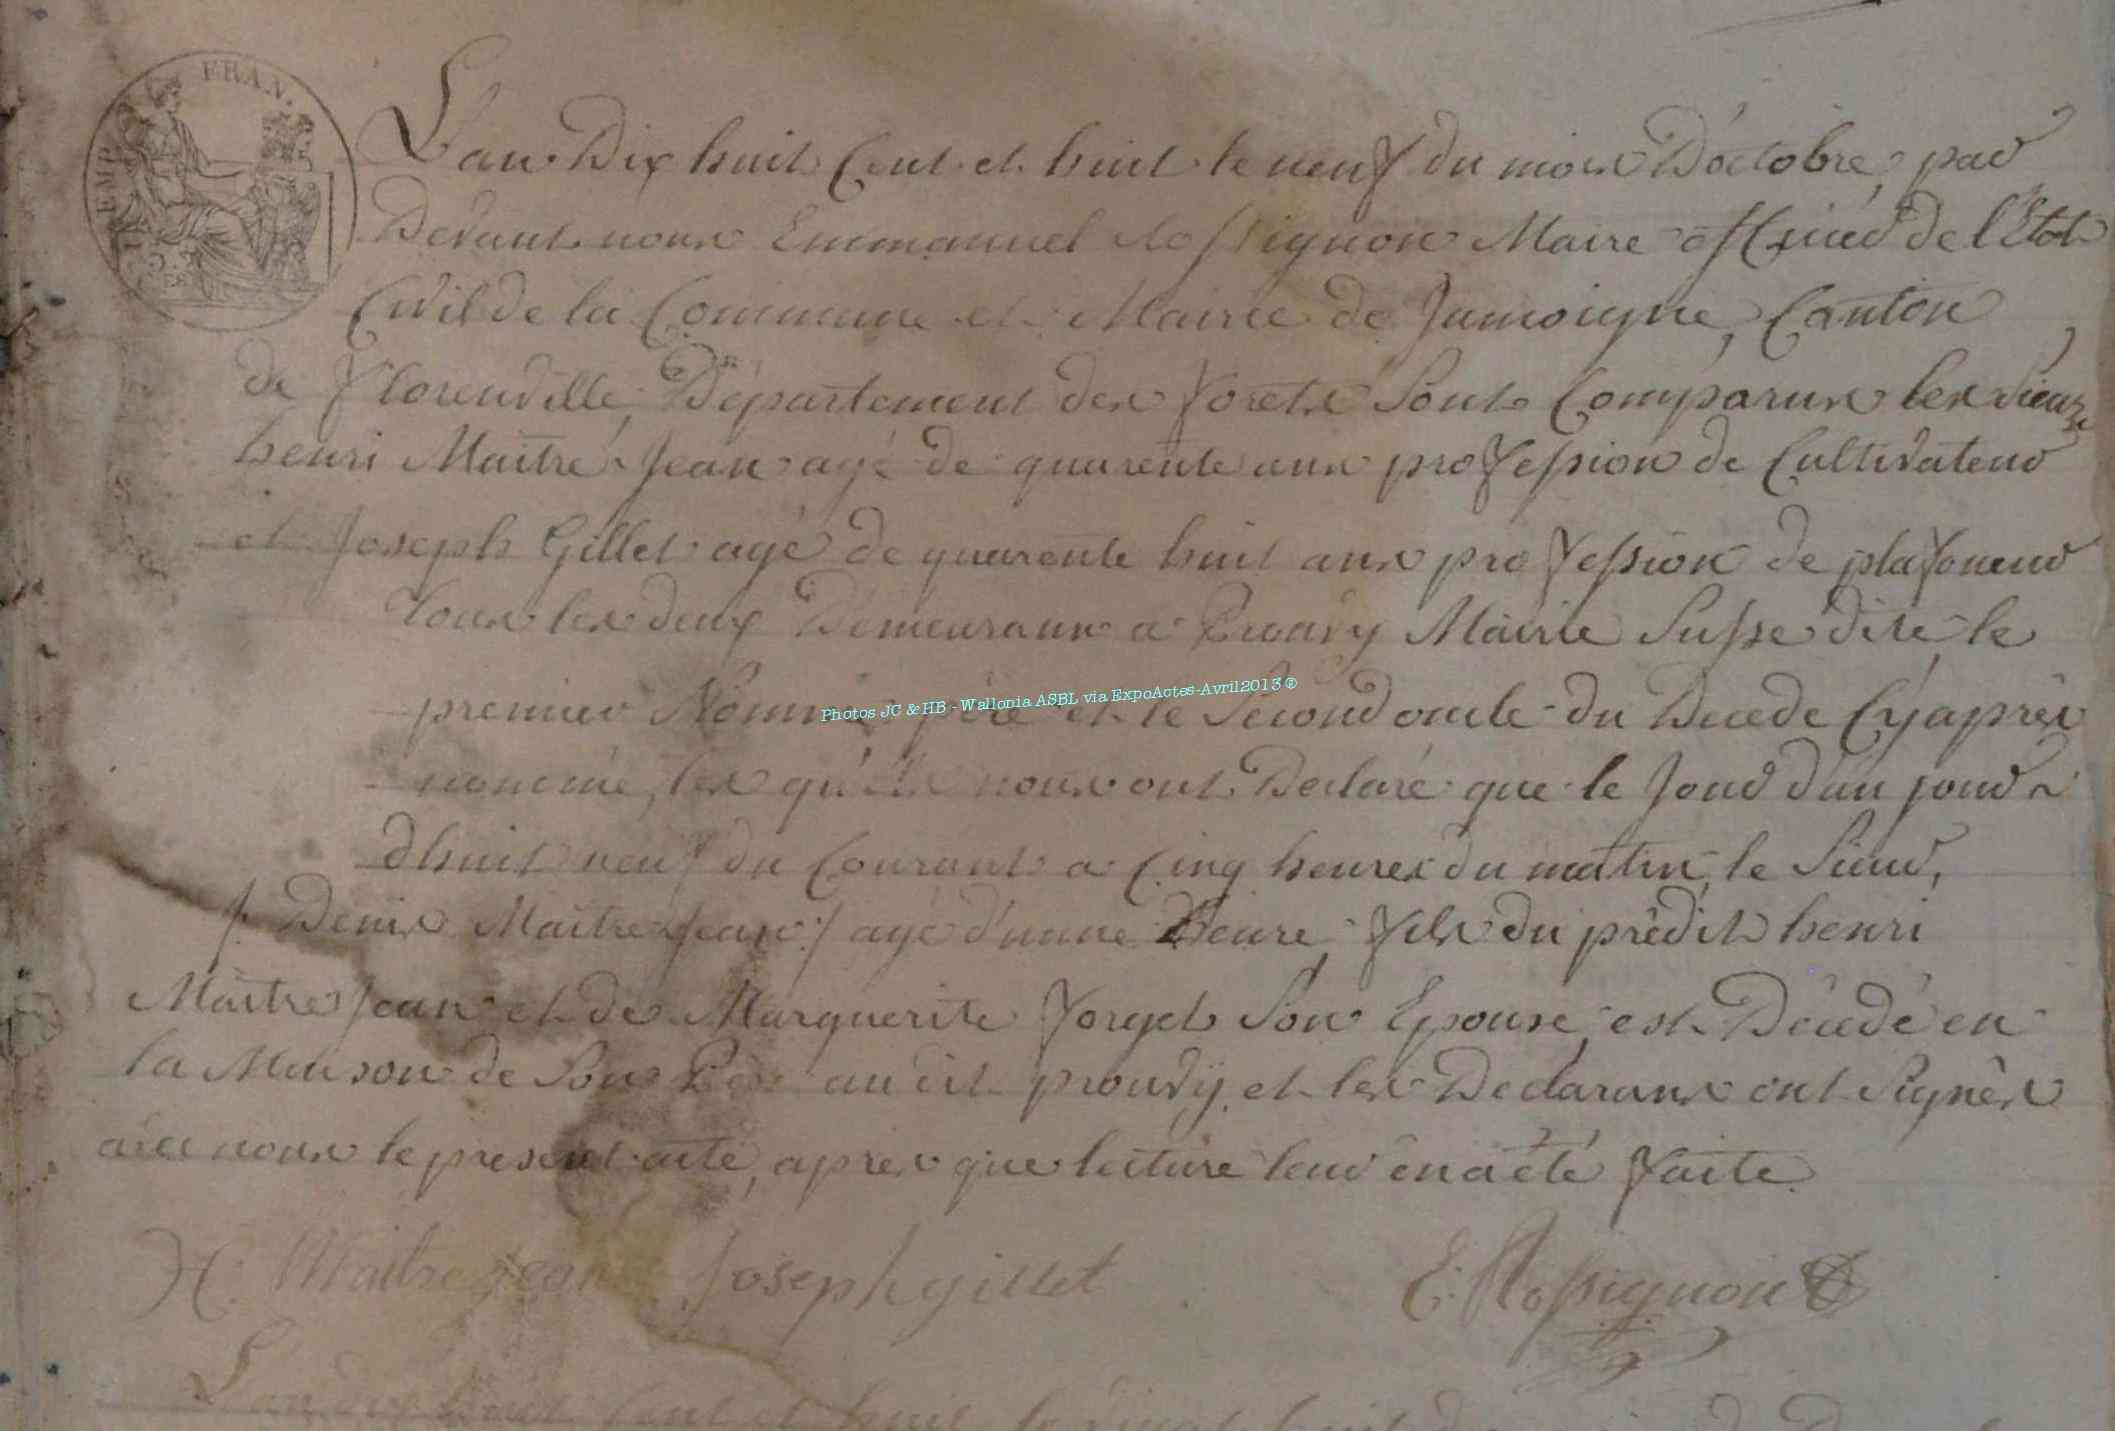 EMP. FRAN.
L'an Dix huit Cent et huit le neuf du mois D'octobre, par
Devant nous Emmanuel Rossignon Maire officier de l'Etat
Civil de la Commune et Mairie de Jamoigne, Canton
de Florenville, Département des forets Sont Comparus les Sieurs
henri Maître Jean agé de quarente ans profession de Cultivateur
et Joseph Gillet agé de quarente huit ans profession de plafoneur
tous les deux Demeurans a Prouvy Mairie Susse dite le
premier Nommé père et le Second oncle du Decede Cyaprès
nommé, les quels nous ont Declaré que le Jour d'au jour
dhuit neuf du Courant a Cinq heures du matin, le Sieur,
/. Denis Maître Jean ./ agé d'unne heure, fils du prédit henri
Maître Jean et de Marguerite Forget Son Epouse, est Décedé en
la Maison de Son Père au dit prouvÿ, et les Declarans ont Signés
avec nous le present acte, apres que lecture leur en a été faite.
H. Maitrejean Joseph gillet E. Rossignon
Photos JC & HB - Wallonia ASBL via ExpoActes-Avril2013 ®
L'an dix huit Cent et huit le vingt huit